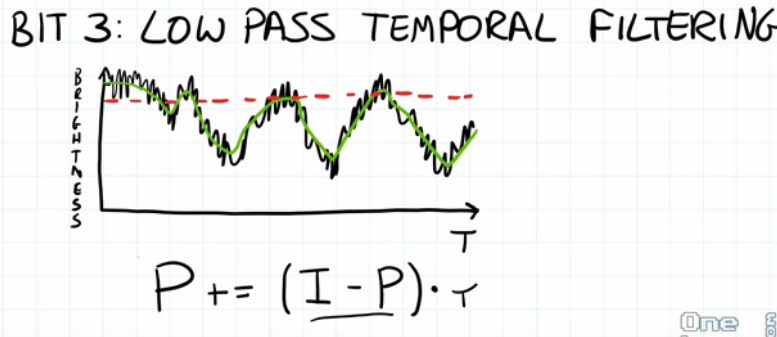 BIT 3: LOW PASS TEMPORAL FILTERING
BRIGHTNESS
T
P += (I - P) · T
One